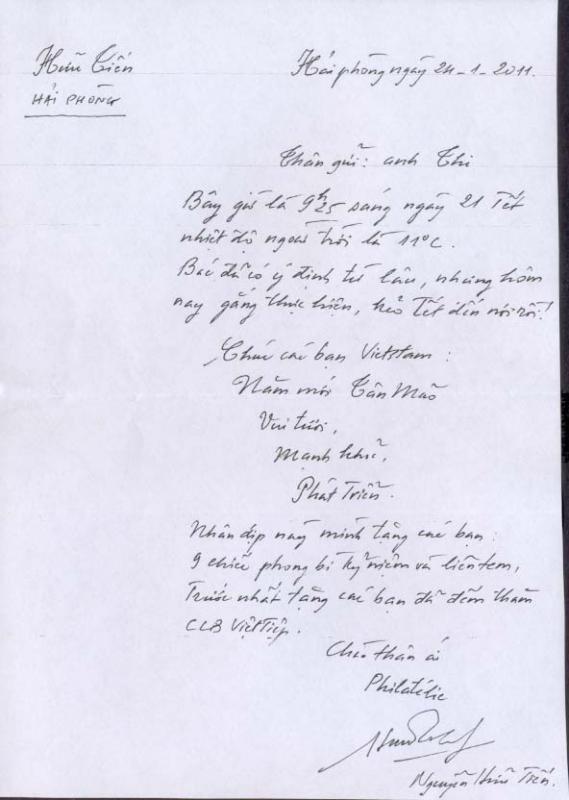 Hữu Tiến
HẢI PHÒNG
Hải phòng ngày 24-1-2011.
Thân gửi: anh Thi
Bây giờ là 9h25 sáng ngày 21 Tết
nhiệt độ ngoài trời là 11°C.
Bác đã có ý định từ lâu, nhưng hôm
nay gắng thực hiện, kẻo Tết đến nơi rồi!
Chúc các bạn Vietstam:
Năm mới Tân Mão
Vui tươi,
Mạnh khoẻ,
Phát Triển.
Nhân dịp này mình tặng các bạn:
9 chiếc phong bì kỷ niệm và liên tem,
Trước nhất tặng các bạn đã đến thăm
CLB Việt Tiệp.
Chào thân ái
Philatélie
Nguyễn Hữu Tiến.